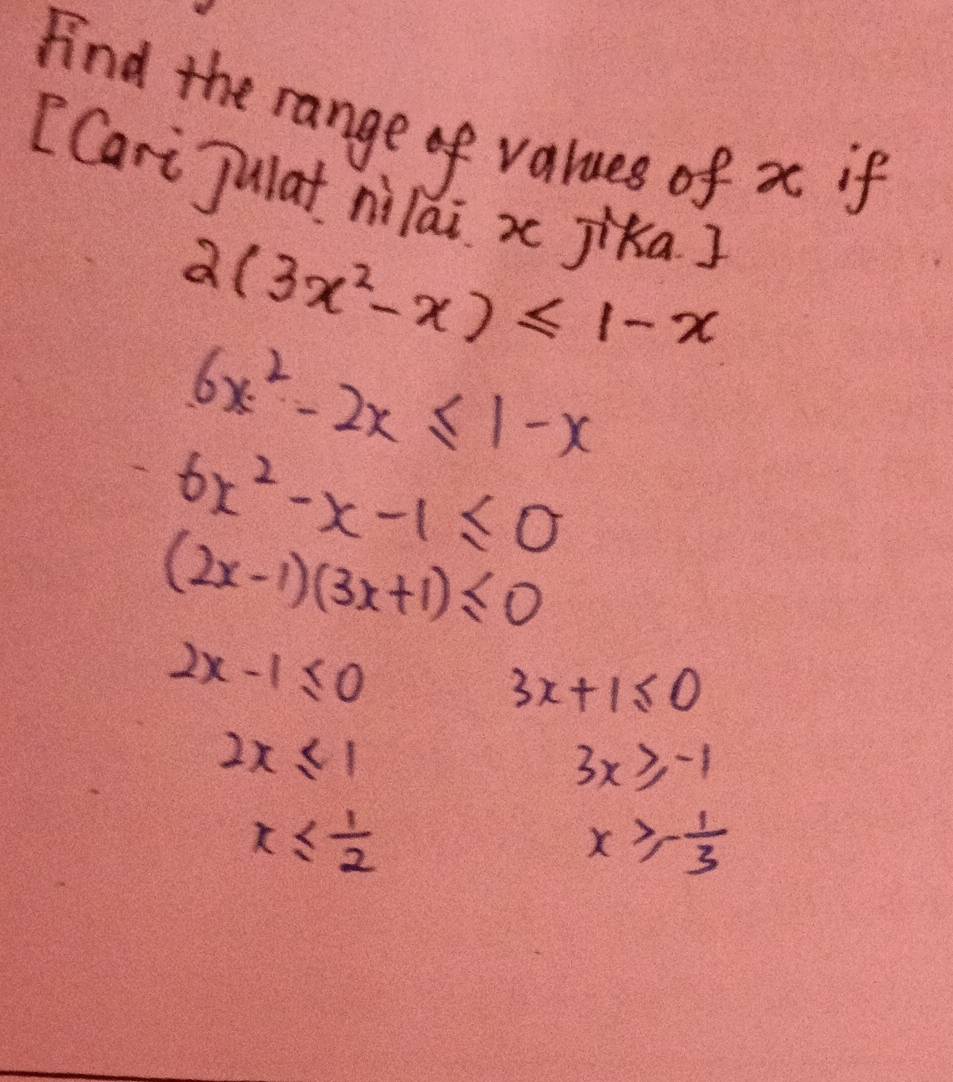 Find the range of values of x if
[Cari Julat nilai x jika]
2(3x² - x) ≤ 1 - x
6x² - 2x ≤ 1 - x
6x² - x - 1 ≤ 0
(2x - 1)(3x + 1) ≤ 0
2x - 1 ≤ 0 3x + 1 ≤ 0
2x ≤ 1 3x ≥ -1
x ≤ 1/2 x ≥ -1/3